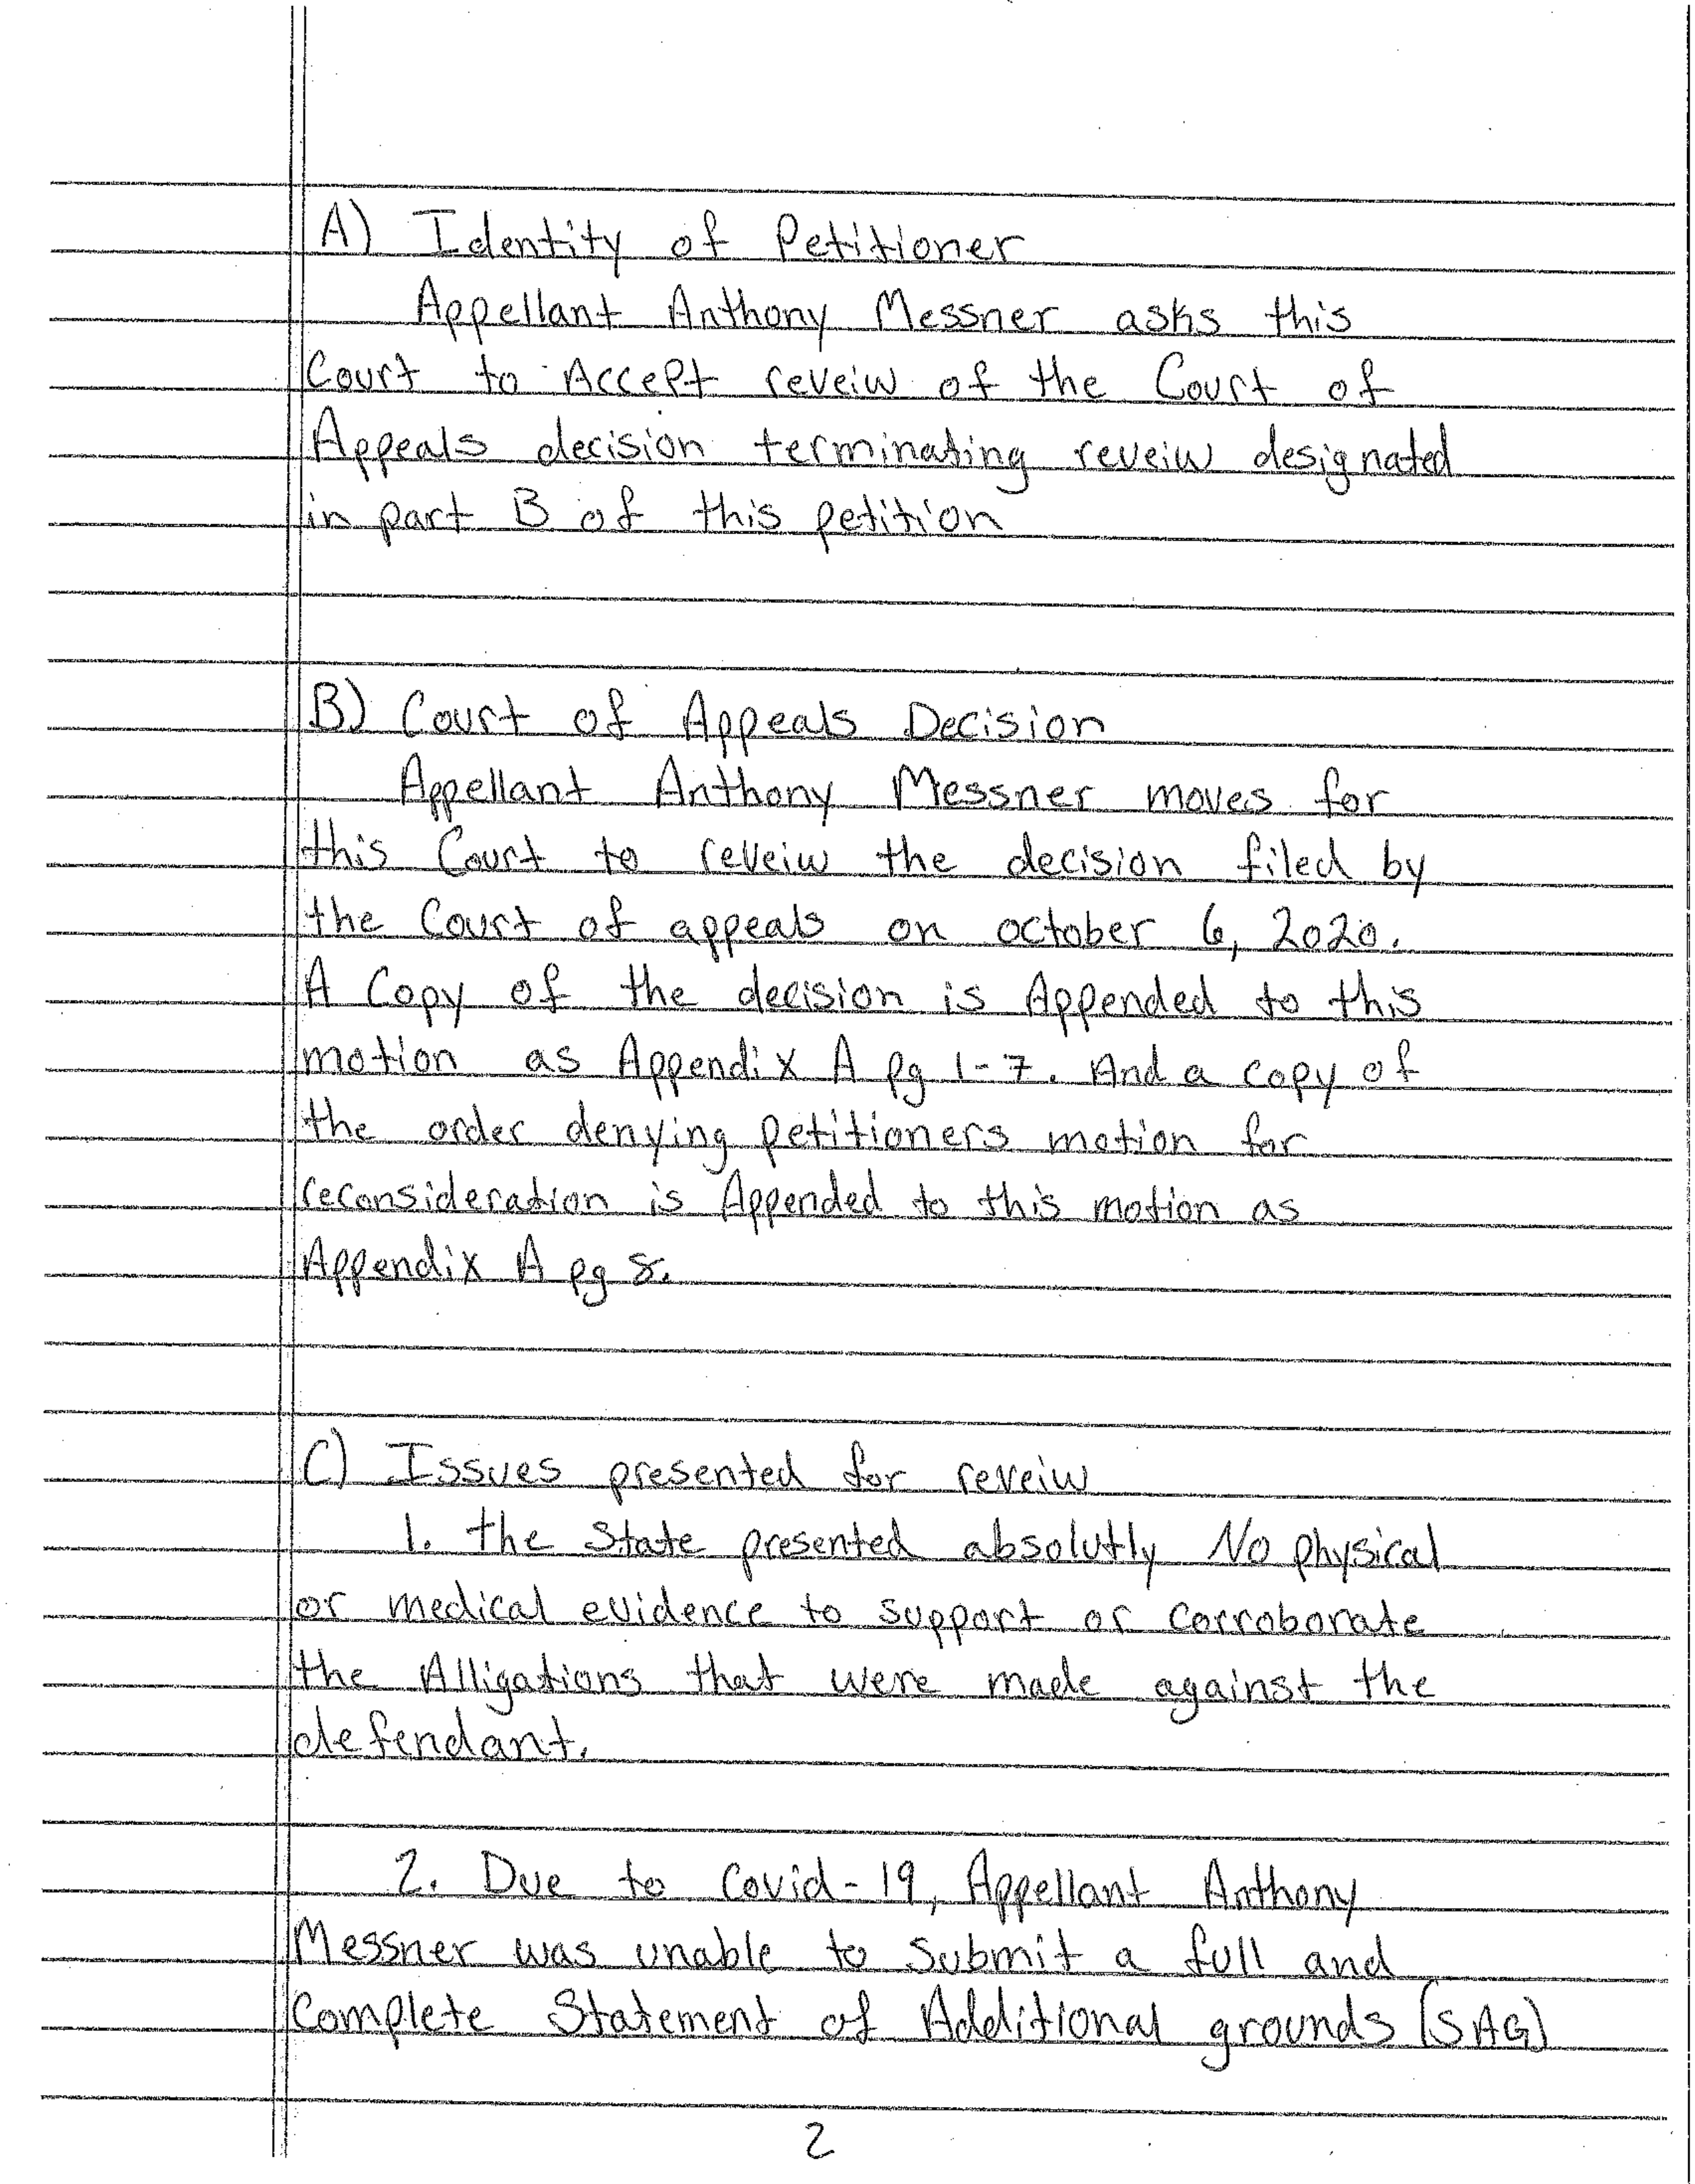 A) Identity of Petitioner
Appellant Anthony Messner asks this
Court to Accept reveiw of the Court of
Appeals decision terminating reveiw designated
in part B of this petition
B) Court of Appeals Decision
Appellant Anthony Messner moves for
this Court to reveiw the decision filed by
the Court of appeals on october 6, 2020.
A Copy of the decision is Appended to this
motion as Appendix A pg 1-7. And a copy of
the order denying petitioners motion for
reconsideration is Appended to this motion as
Appendix A pg 8.
C) Issues presented for reveiw
1. the State presented absolutly No physical
or medical evidence to support or corroborate
the Alligations that were made against the
defendant.
2. Due to Covid-19, Appellant Anthony
Messner was unable to Submit a full and
Complete Statement of Additional grounds (SAG)
2